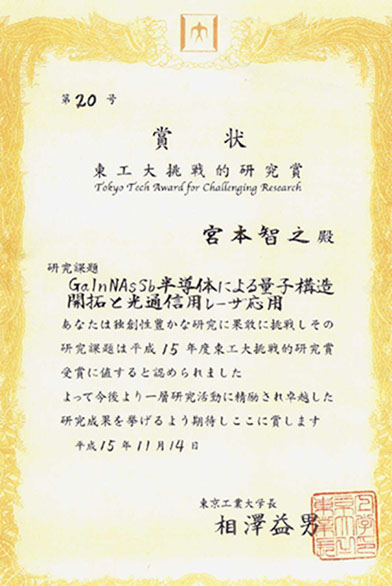 第20号
賞状
東工大挑戦的研究賞
Tokyo Tech Award for Challenging Research
宮本智之殿
研究課題
GaInNAsSb半導体による量子構造
開拓と光通信用レーザ応用
あなたは独創性豊かな研究に果敢に挑戦しその
研究課題は平成15年度東工大挑戦的研究賞
受賞に値すると認められました
よって今後より一層研究活動に精励され卓越した
研究成果を挙げるよう期待しここに賞します
平成15年11月14日
東京工業大学長
相澤益男